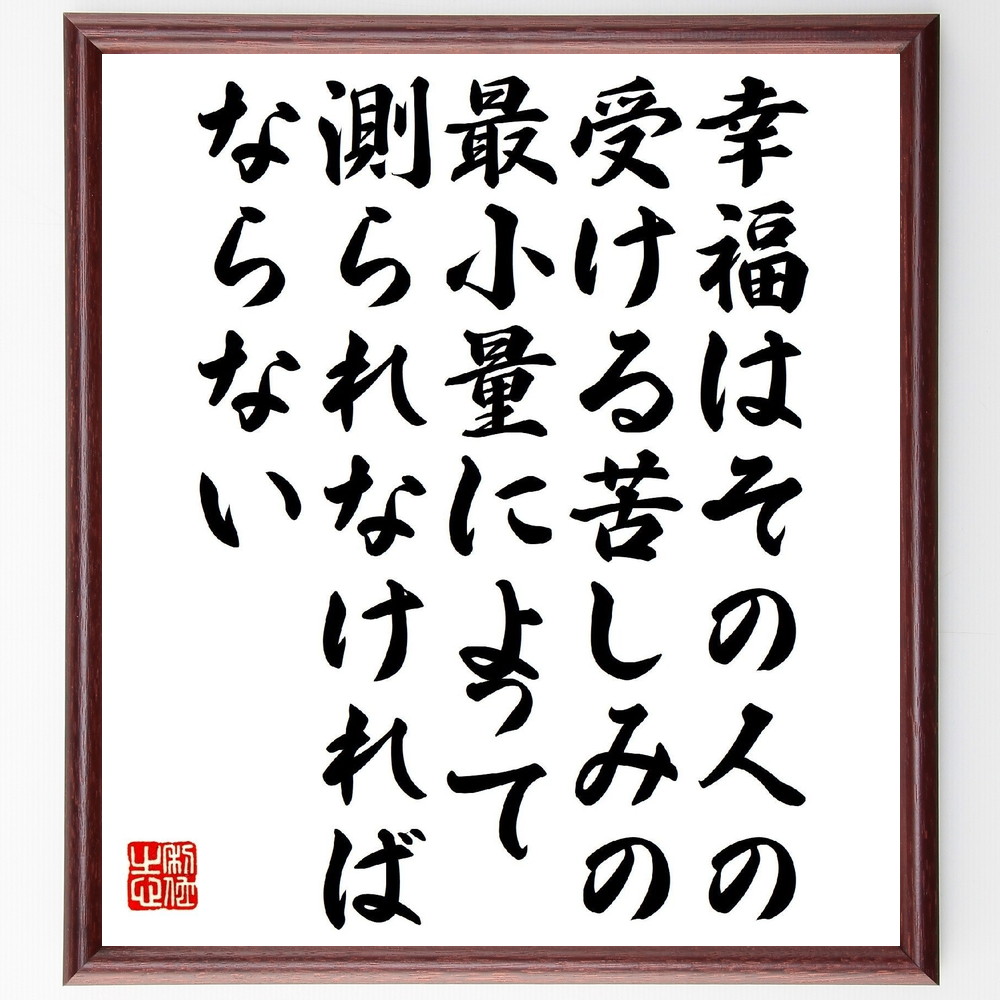 幸福はその人の
受ける苦しみの
最小量によって
測られなければ
ならない